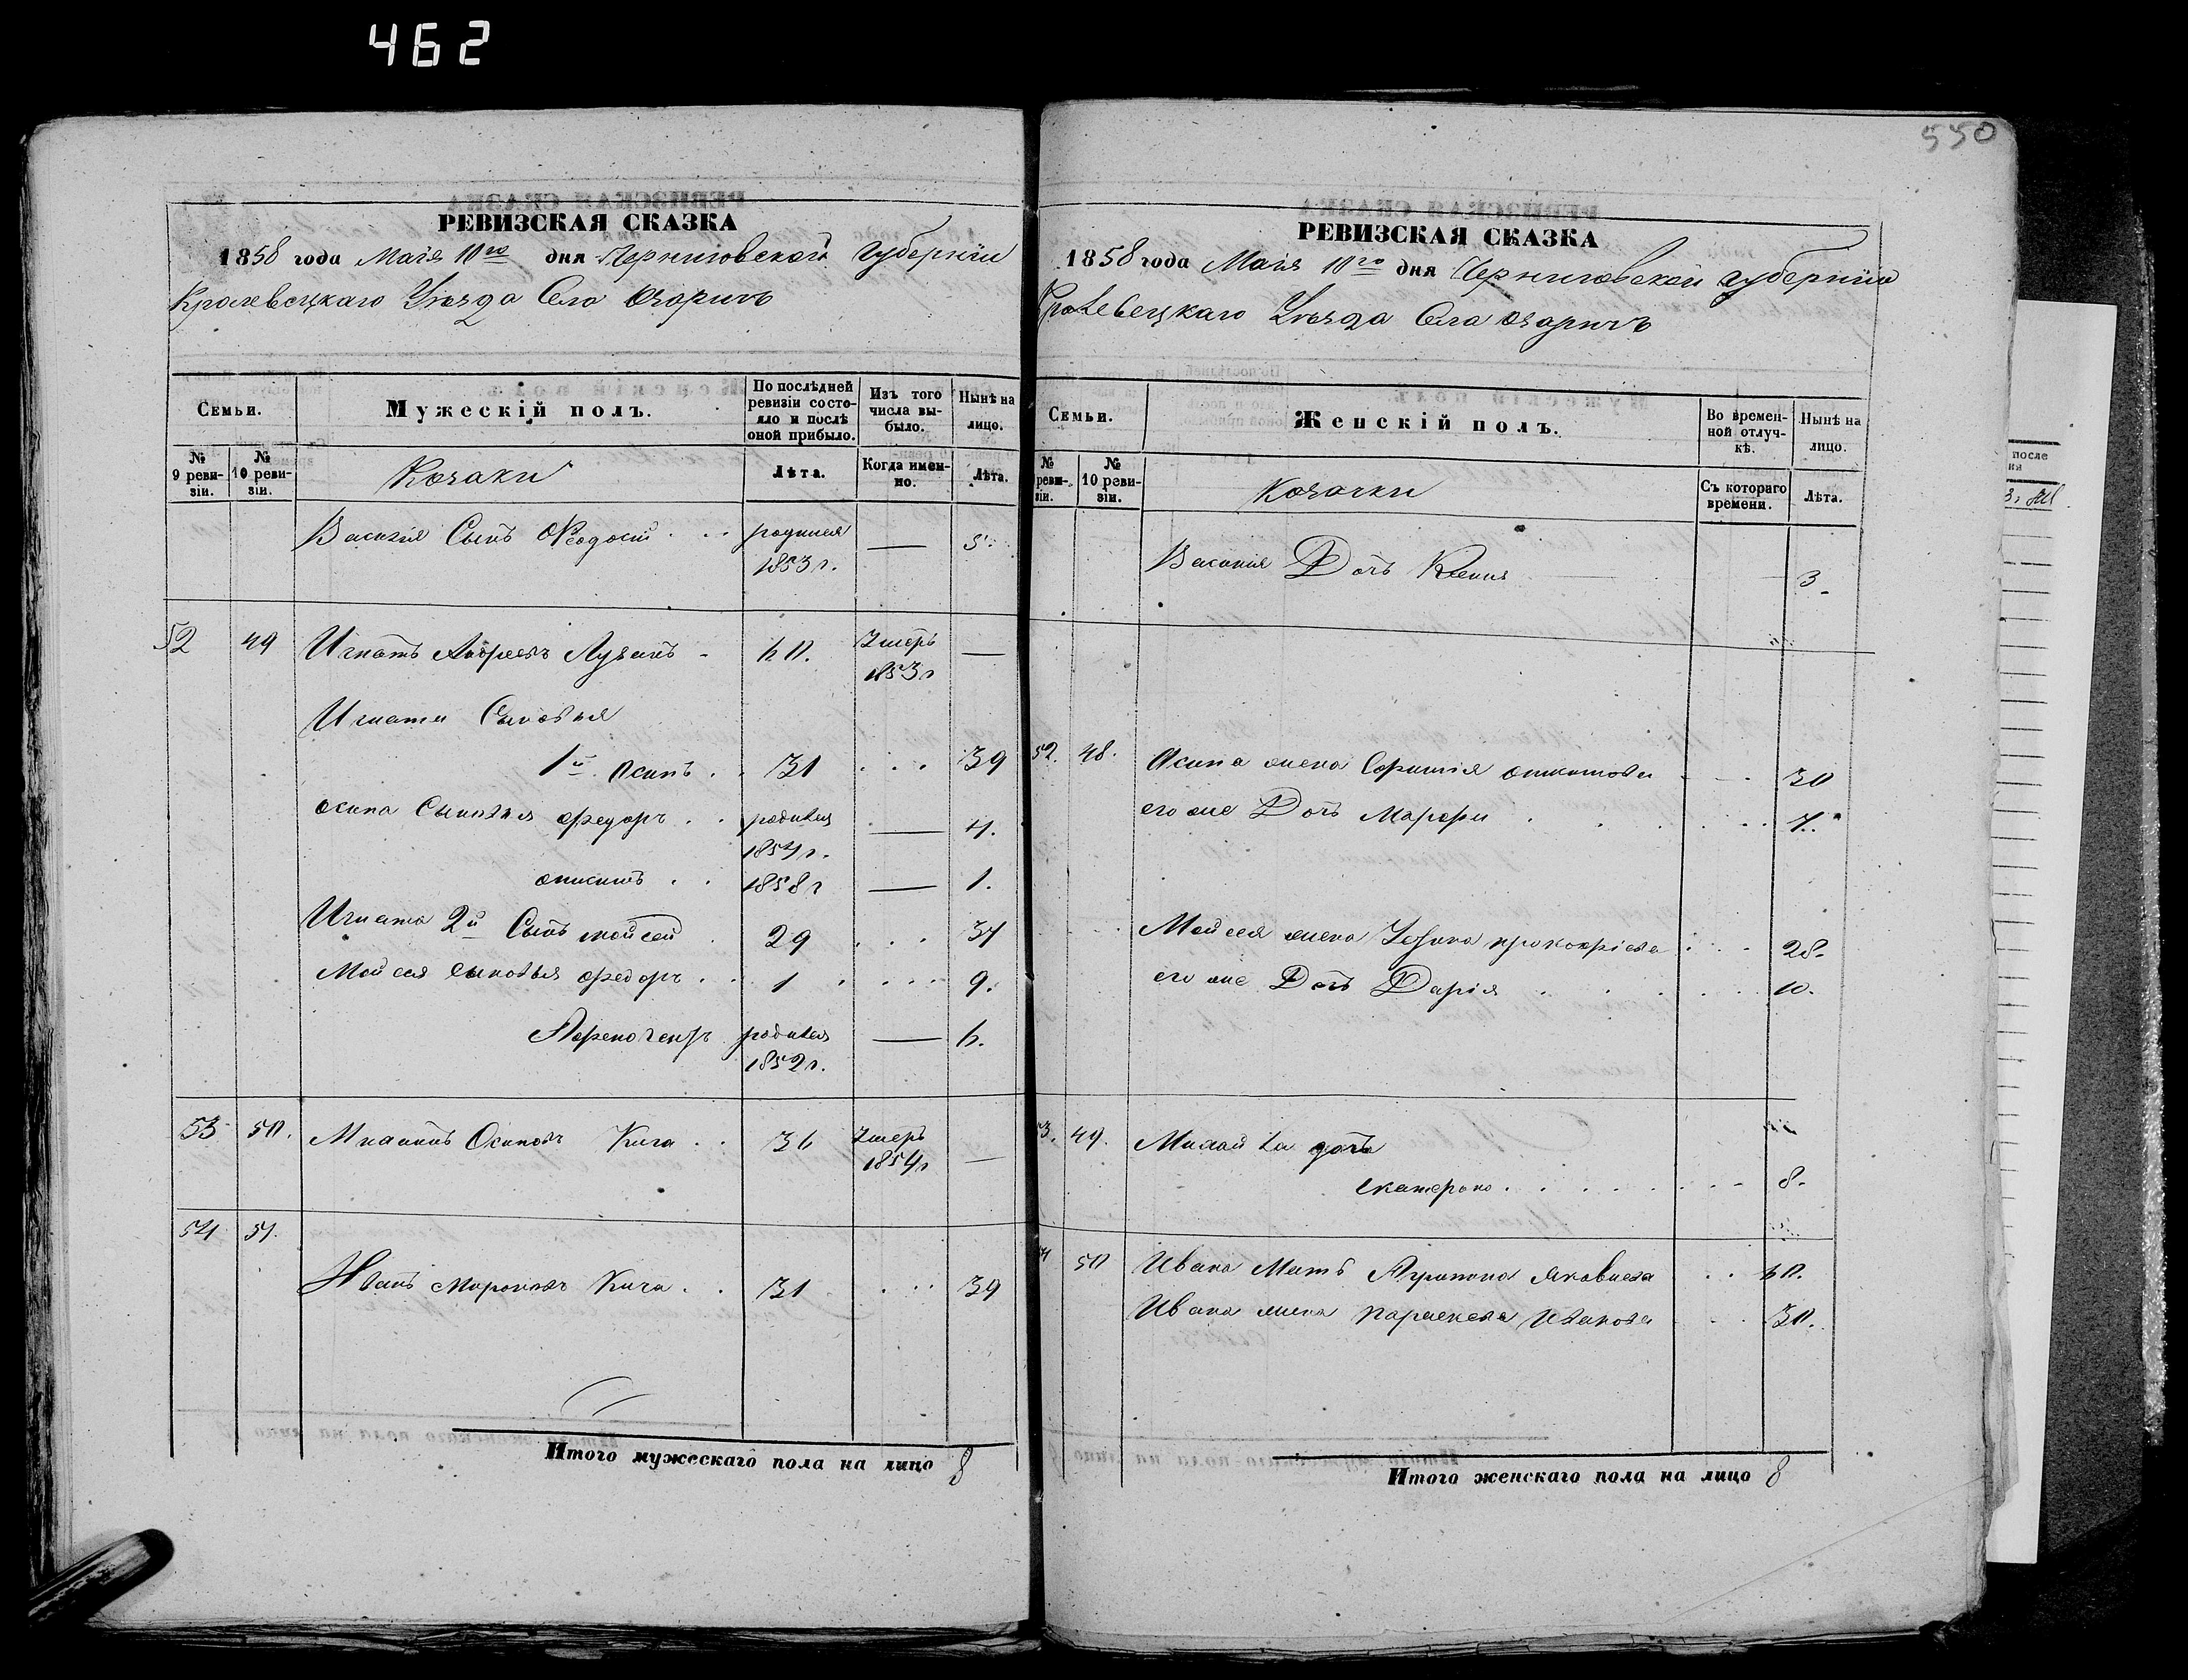 462
550
РЕВИЗСКАЯ СКАЗКА
1858 года Маія 10го дня Черниговской губерніи
Кролевецкаго Уѣзда Села Озаричъ
Семьи.
Мужескій полъ.
По послѣдней ревизіи состояло и послѣ оной прибыло.
Изъ того числа выбыло.
Нынѣ на лицо.
№ 9 ревизіи.
№ 10 ревизіи.
Козаки
Лѣта.
Когда именно.
Лѣта.
Василія Сынъ Феодосій родился 1853 г. — 5.
52 49 Игнатъ Андреевъ 60. Умеръ 1853 г —
Игната Сыновья
1й Осипъ 31 39
Осипа Сыновья Федоръ родился 1854 г. — 4.
1858 г — 1.
Игната 2й Сынъ Мойсей 29 37
Мойсея сыновья Федоръ 1 9.
родился 1852 г. — 6.
53 50. Осиповъ Кича 36 Умеръ 1854 г —
54 51.
Иванъ Мироновъ Кича 31 39
Итого мужескаго пола на лицо 8
РЕВИЗСКАЯ СКАЗКА
1858 года Маія 10го дня Черниговской губерніи
Кролевецкаго Уѣзда Села Озаричъ
Семьи.
Женскій полъ.
Во временной отлучкѣ.
Нынѣ на лицо.
№ ревизіи.
№ 10 ревизіи.
Козачки
Съ котораго времени.
Лѣта.
Василія Дочь Ксенія 3.
52. 48. Осипа жена 30
его же Дочь Марфа 7.
Мойсея жена 28.
его же Дочь Дарія 10.
53. 49. дочь
екатерина 8.
50 Ивана Мать Яковлева 60.
Ивана жена параскева Иванова 30.
Итого женскаго пола на лицо 8
после